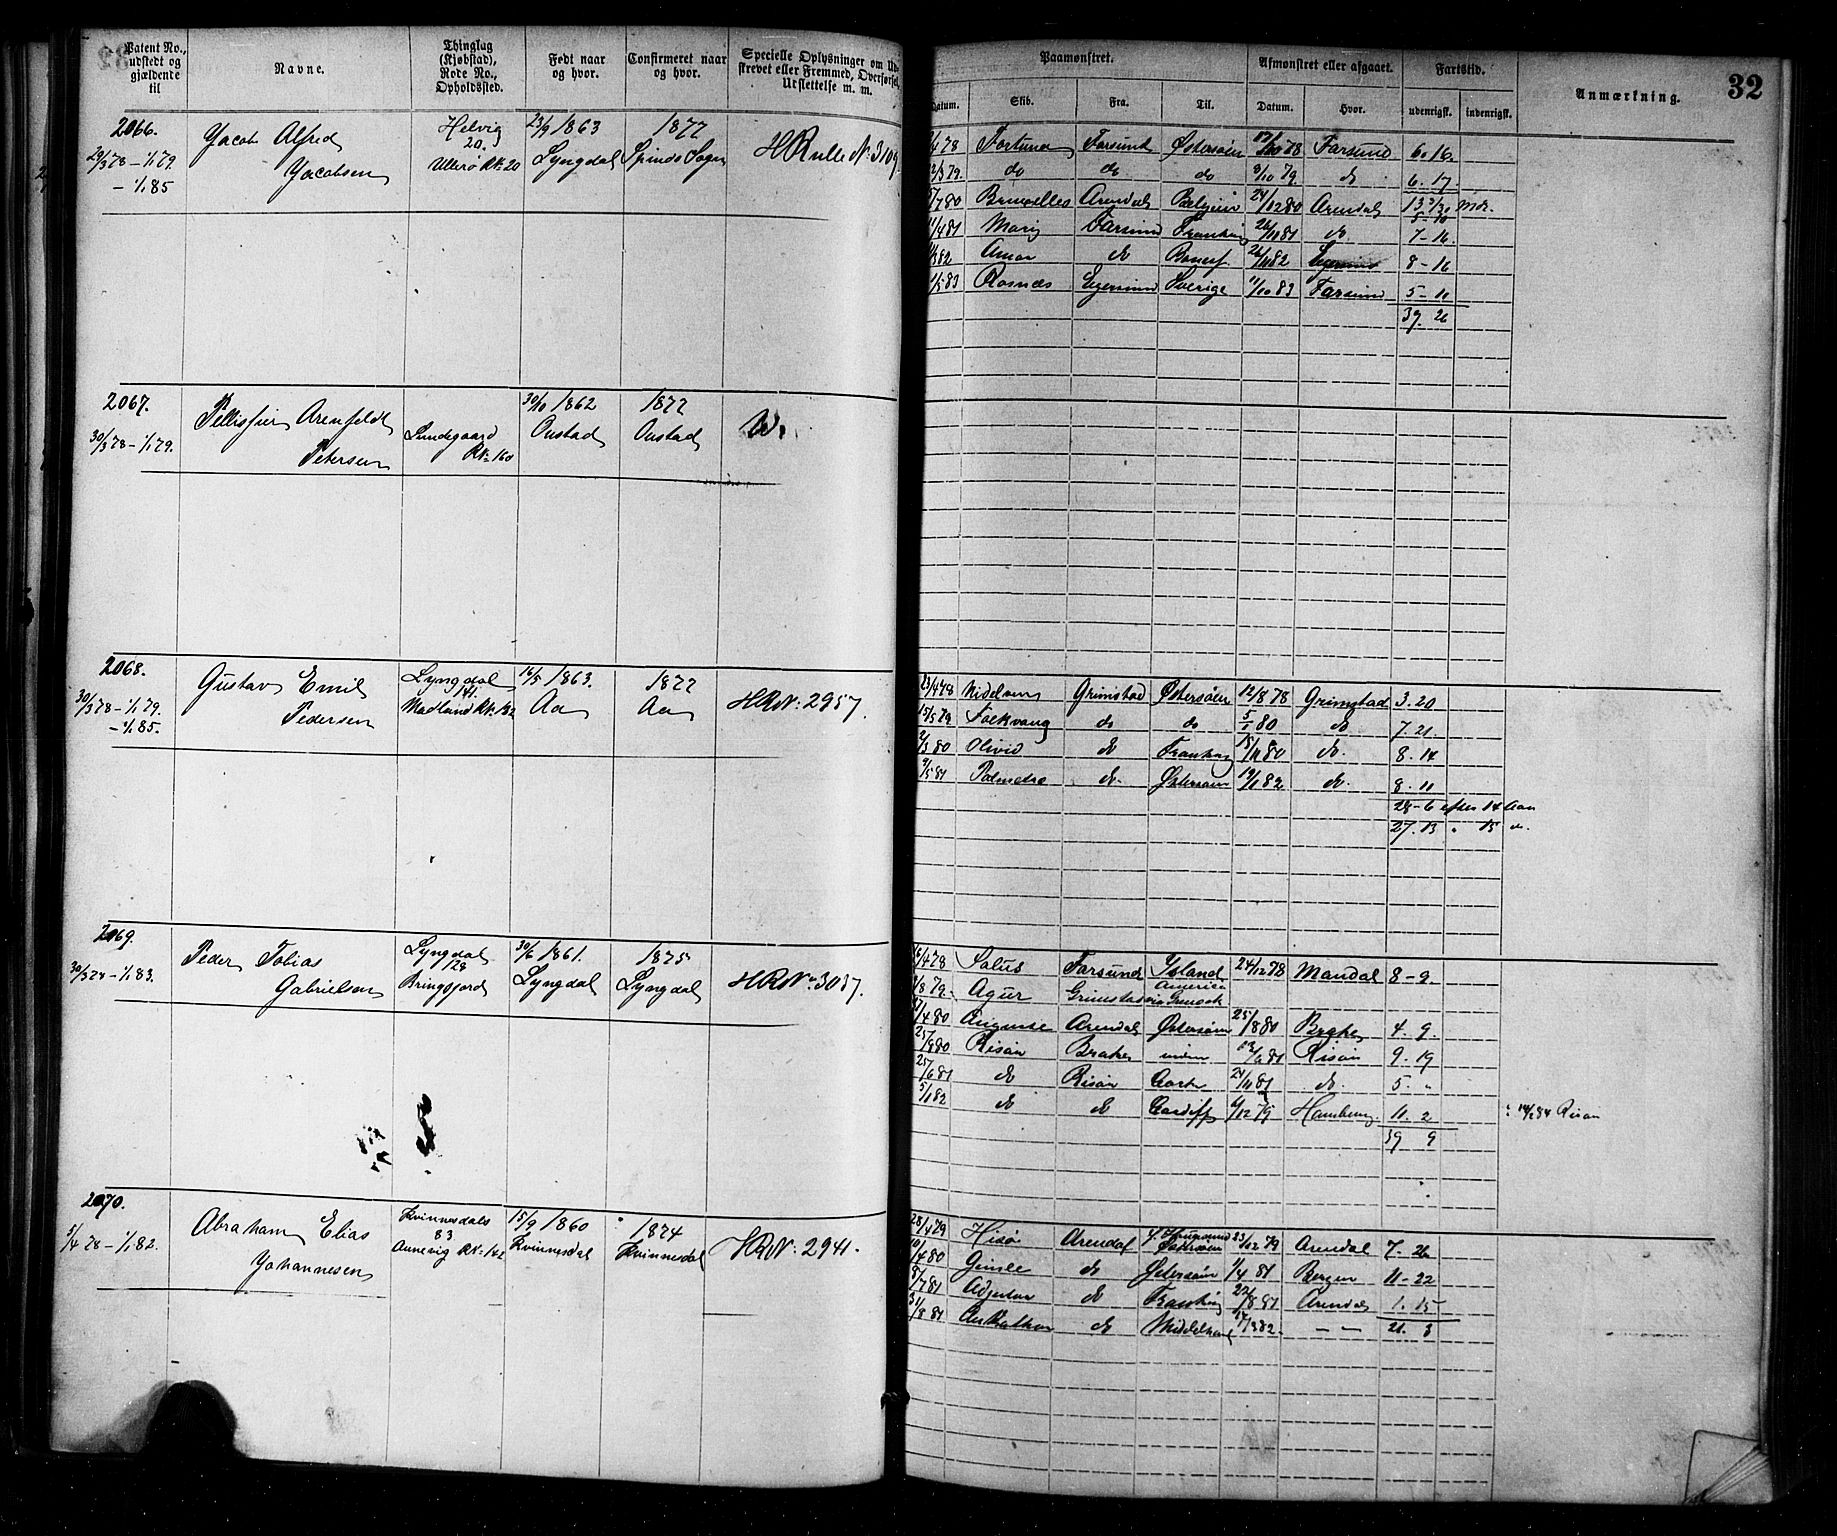 Patent No., udstedt og gjældende til
Navne.
Thinglag (Kjøbstad), Rode No., Opholdssted.
Født naar og hvor.
Confirmeret naar og hvor.
Specielle Oplysninger om
2066. 29/3 78 – 1/1 79. – 1/1 85
Jacob Alfred
Jacobsen
Helvig
20.
Ullerø RN: 20
23/9 1863
Lyngdal
1877
Spinds Sogn
H Rulle No 3109
2067.
30/3 78 – 1/1 79.
Pellisfier Arenfeldt
Petersen
Lundegaard
RN: 160
30/10 1862
Oustad
1877
Oustad
W.
2068.
30/3 78 – 1/1 79.
– 1/1 85.
Gustav Emil
Pedersen
Lyngdal
141.
Madland RN: 132
14/5 1863.
Aa
1877
Aa
HRN: 2957.
2069.
– 1/1 83.
Peder Tobias
Gabrielsen
Lyngdal
128
Bringsjord
30/6 1861.
Lyngdal
1875
Lyngdal
HRNo: 3017.
2070.
5/4 78 – 1/1 82.
Abraham Elias
Johannesen
Kvinnesdals
83
Annevig RN: 162
15/9 1860
Kvinnesdal
1874
Kvinnesdal
HRN: 2941.
32
Paamønstret.
Afmønstret eller afgaaet.
Fartstid.
Anmærkning.
Datum.
Skib.
Fra.
Til.
Datum.
Hvor.
udenrigsk.
indenrigsk.
/4 78 Fortuna Farsund Østersøen 78 Farsund 6. 16.
/3 79. do do do 9/10 79. do 6. 17
/7 80 Bruxelles Arendal Belgien 24/12 80 Arendal
/4 81 Mary Farsund Frankrig 26/11 81 do 7 – 16.
82 Amor do 26/11 82 8 – 16
/5 83 Rosnæs Egersund Sverige 11/10 83 Farsund 5 – 11
39. 26
23/4 78 Nidelven Grimstad Østersøen 12/8 78 Grimstad 3. 20
15/5 79 Folkvang do do 5/1 80 do 7. 21.
2/3 80 Olivid do Frankrig 15/11 80 do. 8. 14
9/5 81 Palmetre do. Østersøen 19/1 82 do. 8. 11
28 – 6 efter 14 Aar
27. 13 " 15 do.
/4 78 Salus Farsund Island 24/12 78 Mandal 8 – 9.
/8 79. Agur Grimstad America
/4 80 Auguste Arendal Østersøen 25/8 80 Brake 4. 9.
25/8 80 Risør Brake 81 Risør 9. 19
25/6 81 do Risør 24/11 81 do. 5. "
5/1 82 do do Cardiff Hamburg. 11. 2
14/2 84 Risør
39 9
28/4 79 Hisø Arendal 23/12 79 Arendal 7. 26
/4 80 Gimle do Østersøen /4 81 Bergen 11 – 22
/7 81 do Frankrig 22/8 81 Arendal 1. 15
31/8 81 do Middelhavet 17/3 82. – – 21. 3